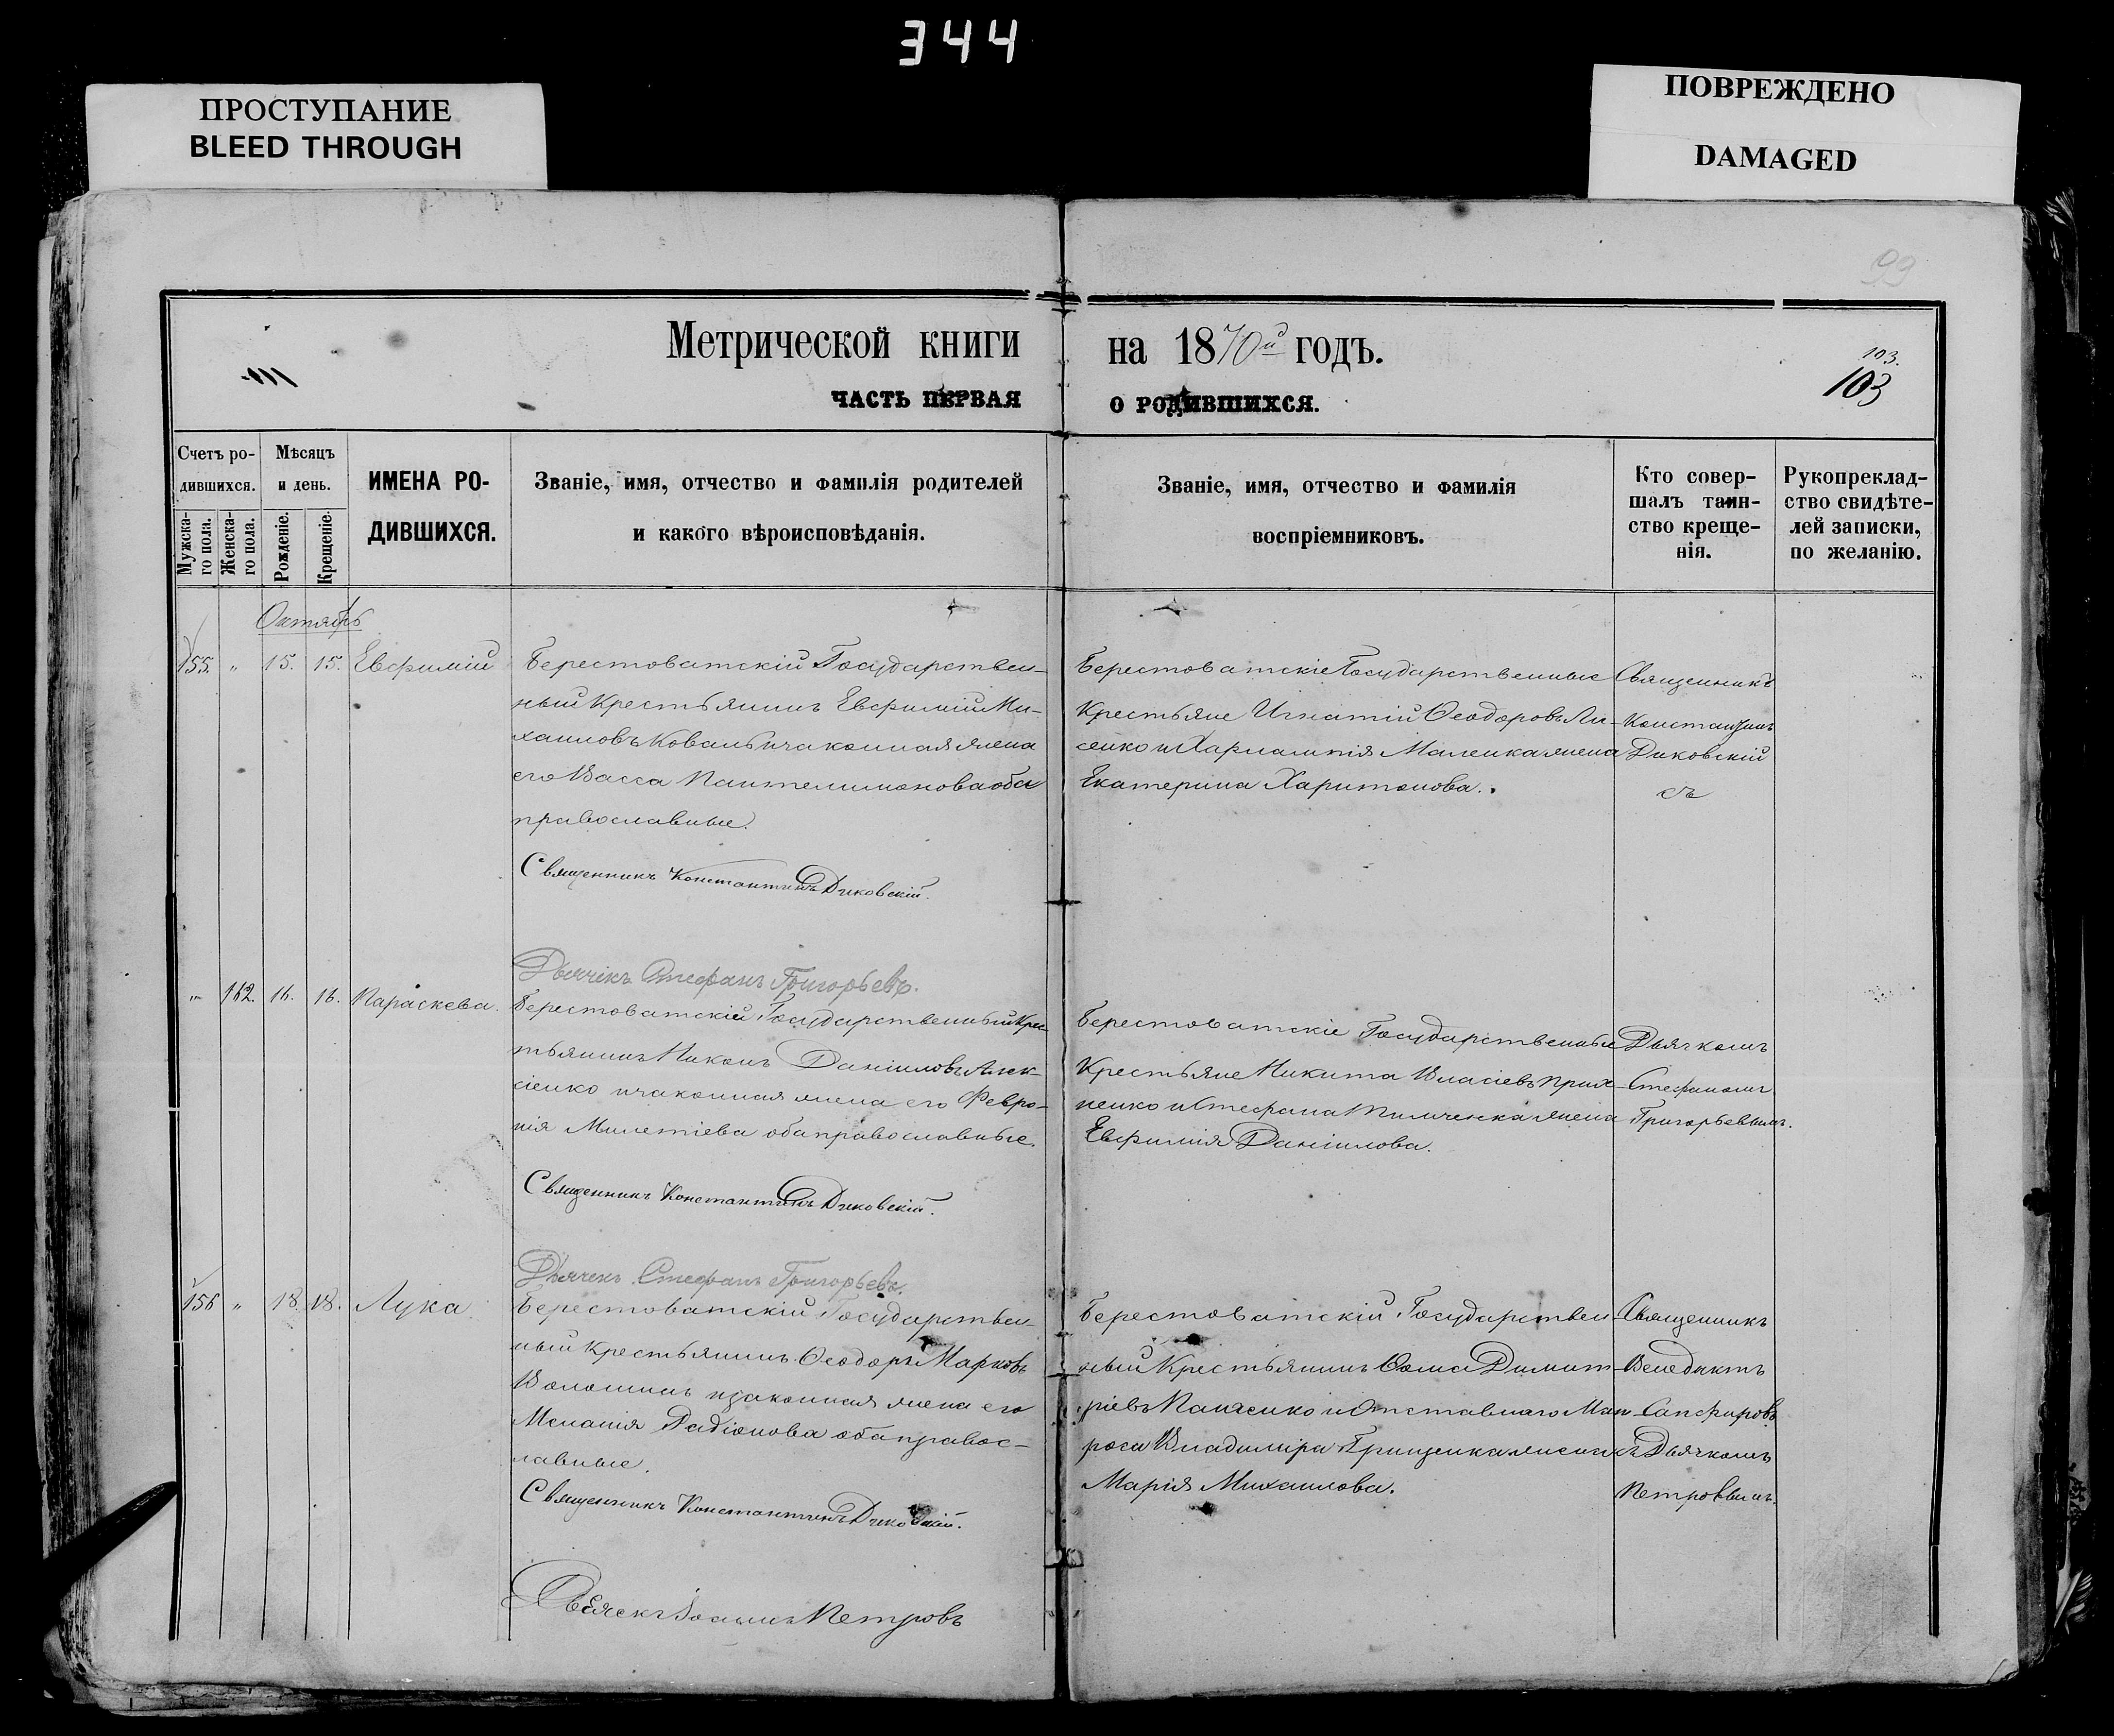 344
ПРОСТУПАНИЕ
BLEED THROUGH
ПОВРЕЖДЕНО
DAMAGED
99
Метрической книги на 1870й годъ.
103.
103
ЧАСТЬ ПЕРВАЯ О РОДИВШИХСЯ.
Счетъ ро-
дившихся.
Мужска-
го пола.
Женска-
го пола.
Мѣсяцъ
и день.
Рожденіе.
Крещеніе.
ИМЕНА РО-
ДИВШИХСЯ.
Званіе, имя, отчество и фамилія родителей
и какого вѣроисповѣданія.
Званіе, имя, отчество и фамилія
воспріемниковъ.
Кто совер-
шалъ таин-
ство креще-
нія.
Рукопреклад-
ство свидѣте-
лей записки,
по желанію.
Октябрь
155. " 15. 15. Евфимій
Берестоватскій Государствен-
ный Крестьянинъ Евфимій Ми-
хаиловъ Коваль и законная жена
его Васса Пантелимонова оба
православные.
Священникъ Константинъ Диковскій.
Дьячекъ Стефанъ Григорьевъ.
Берестоватскіе Государственные
Крестьяне Игнатій Ѳеодоровъ Ли-
сенко и Харлампія Маленка жена
Екатерина Харитонова.
Священникъ
Константинъ
Диковскій
съ
" 162. 16. 16. Параскева.
Берестоватскій Государственный Крес-
тьянинъ Никонъ Даніиловъ Алек-
сіенко и законная жена его Февро-
нія Милетіева оба православные.
Священникъ Константинъ Диковскій.
Дьячекъ Стефанъ Григорьевъ.
Берестоватскіе Государственные
Крестьяне Никита Власіевъ
ненко и Стефана жена
Евфимія Даніилова.
Дьячкомъ
Стефаномъ
Григорьевымъ.
156 " 18. 18. Лука
Берестоватскій Государствен-
ный Крестьянинъ Ѳеодоръ Марковъ
Волошинъ и законная жена его
Меланія Радіонова оба правос-
лавные.
Священникъ Константинъ Диковскій.
Дьячекъ Іоаннъ Петровъ
Берестоватскій Государствен-
ный Крестьянинъ Ѳома Димит-
ріевъ Панченко и Отставнаго Мат-
роса Владиміра Гриценка жена
Марія Михаилова.
Священникъ
Венедиктъ
Сапфировъ
съ Дьячкомъ
Петровымъ.